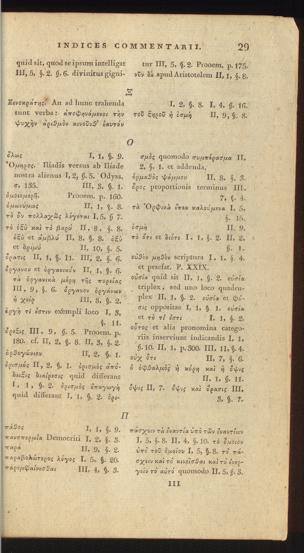 INDICES COMMENTARII. 29
quid sit, quod se ipsum intelligat
III, 5, §. 2. §. 6. divinitus gigni-
tur III, 5, §. 2. Prooem. p. 175.
νοῦν apud Aristotelem II, 1, §. 8.
Ξ
Ξενοκράτης. An ad hunc trahenda
sunt verba: ἀποφηνάμενοι τὴν
ψυχὴν ἀριθμὸν κινοῦνθ᾽ ἑαυτόν
I, 2, §. 8. I, 4, §. 16.
τοῦ ξηροῦ ἡ ὀσμή II, 9, §. 8.
Ο
ὅλως I, 1, §. 9.
Ὅμηρος. Iliadis versus ab Iliade
nostra alienus I, 2, §. 5. Odyss.
σ. 135. III, 3, §. 1.
ὁμοιομερῆ. Prooem. p. 160.
ὁμωνύμως II, 1, §. 8.
τὸ ὂν πολλαχῶς λέγεται I, 5, § 7.
τὸ ὀξὺ καὶ τὸ βαρύ II, 8, §. 8.
ὀξὺ et ἀμβλύ II, 8, §. 8. ὀξὺ
et δριμύ II, 10, §. 5.
ὅρασις II, 1, §. 11. III, 2, §. 6.
ὄργανον et ὀργανικόν II, 1, §. 6.
τὰ ὀργανικὰ μέρη τῆς πορείας
III, 9, §. 6. ὄργανον ὀργάνων
ἡ χείρ III, 8, §. 2.
ὀργὴ τί ἐστιν exempli loco I, 3,
§. 11.
ὄρεξις III, 9, §. 5. Prooem. p.
180. cf. II, 2, §. 8. II, 3, §. 2.
ὀρθογώνιον II, 2, §. 1.
ὁρισμός II, 2, §. 1. ὁρισμὸς ἀπό-
δειξις διαίρεσις quid differant
I, 1, §. 2. ὁρισμὸς ἐπαγωγή
quid differant I, 1, §. 2. ὁρι-
σμὸς quomodo συμπέρασμα II,
2, §. 1. et addenda.
ὁρμαθὸς ψάμμου II, 8, §. 3.
ὅρος proportionis terminus III,
7, §. 4.
τὰ Ὀρφικὰ ἔπεα καλούμενα I, 5,
§. 15.
ὀσμή II, 9.
τὸ ὅτι et διότι I, 1, §. 2. II, 2,
§. 1.
οὐθὲν μηθὲν scriptura I, 1, §. 4.
et praefat. P. XXIX.
οὐσία quid sit II, 1, §. 2. οὐσία
triplex, sed uno loco quadru-
plex II, 1, §. 2. οὐσία et φύ-
σις opposita I, 1, §. 1. οὐσία
et τὸ τί ἐστι I, 1, §. 2.
οὗτος et alia pronomina catego-
riis inserviunt indicandis I, 1,
§. 10. II, 1, p. 300. III, 11, §. 4.
οὐχ ὅτι II, 7, §. 6.
ὁ ὀφθαλμὸς ἡ κόρη καὶ ἡ ὄψις
II, 1, §. 11.
ὄψις II, 7. ὄψις καὶ ὅρασις III,
3, §. 7.
Π
πάθος I, 1, §. 9.
πανσπερμία Democriti I, 2, §. 3.
παρά II, 9, §. 2.
παραβολώτερος λόγος I, 5, §. 20.
παρεμφαίνεσθαι III, 4, §. 3.
πάσχειν τὰ ἐναντία ὑπὸ τῶν ἐναντίων
I, 5, §. 8. II, 4, §. 10. τὸ ὅμοιον
ὑπὸ τοῦ ὁμοίου I, 5, §. 8. τὸ πά-
σχειν καὶ τὸ κινεῖσθαι καὶ τὸ ἐνερ-
γεῖν τὸ αὐτὸ quomodo II, 5, §. 3.
III